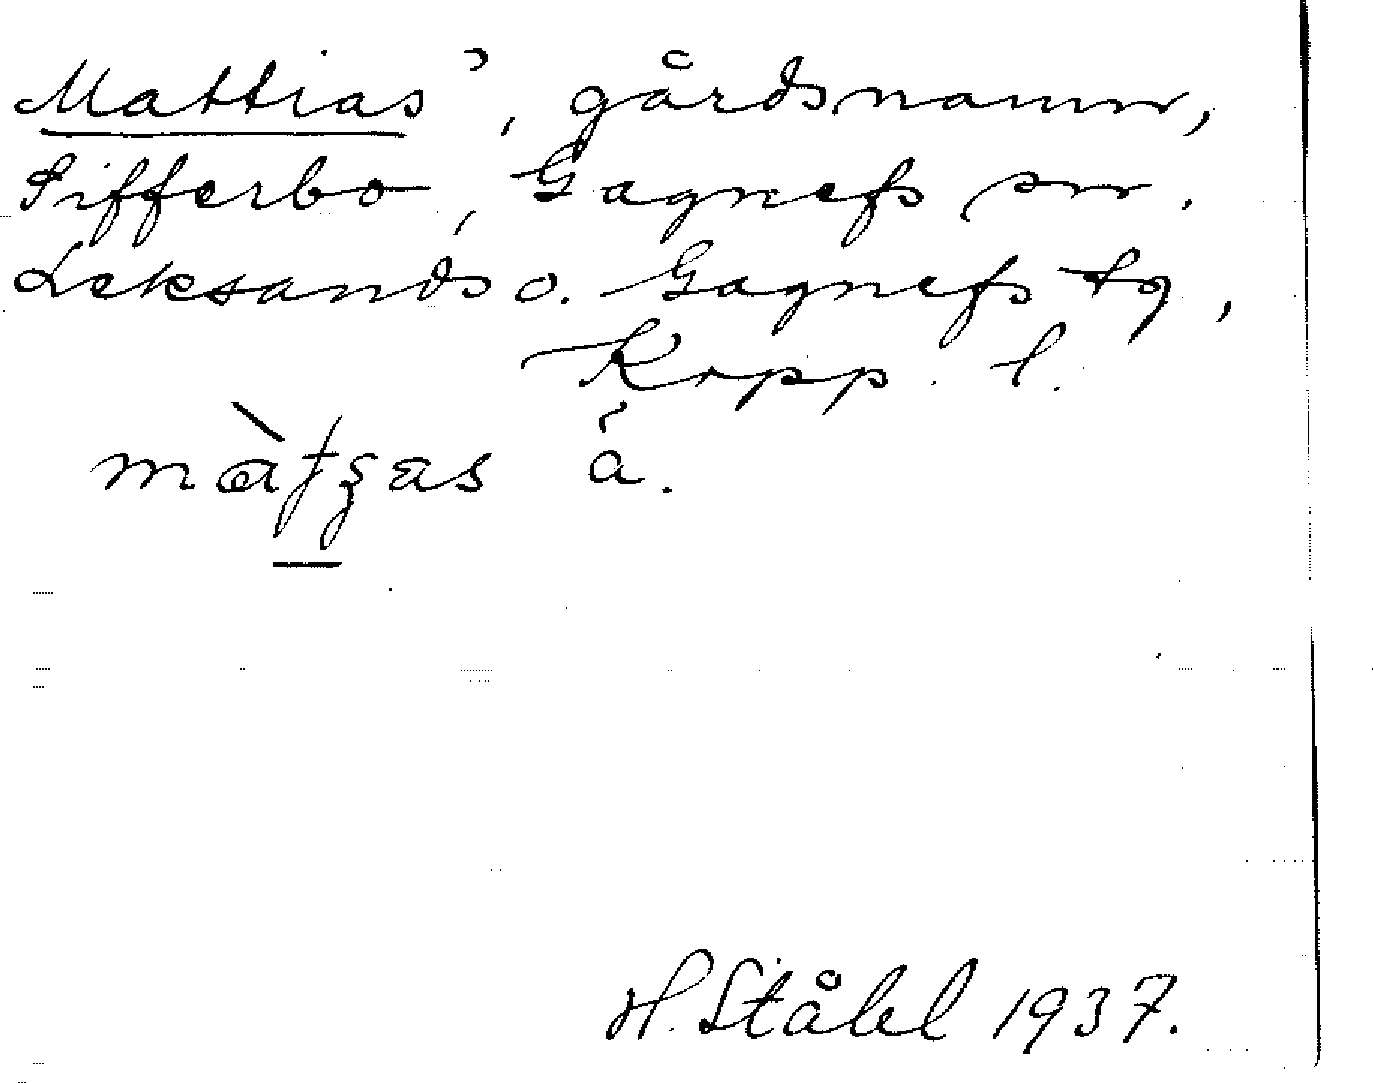 Mattias', gårdsnamn,
Sifferbo, Gagnefs sn.
Leksands o. Gagnefs tg,
Kopp. l.
á.
H. Ståhl 1937.